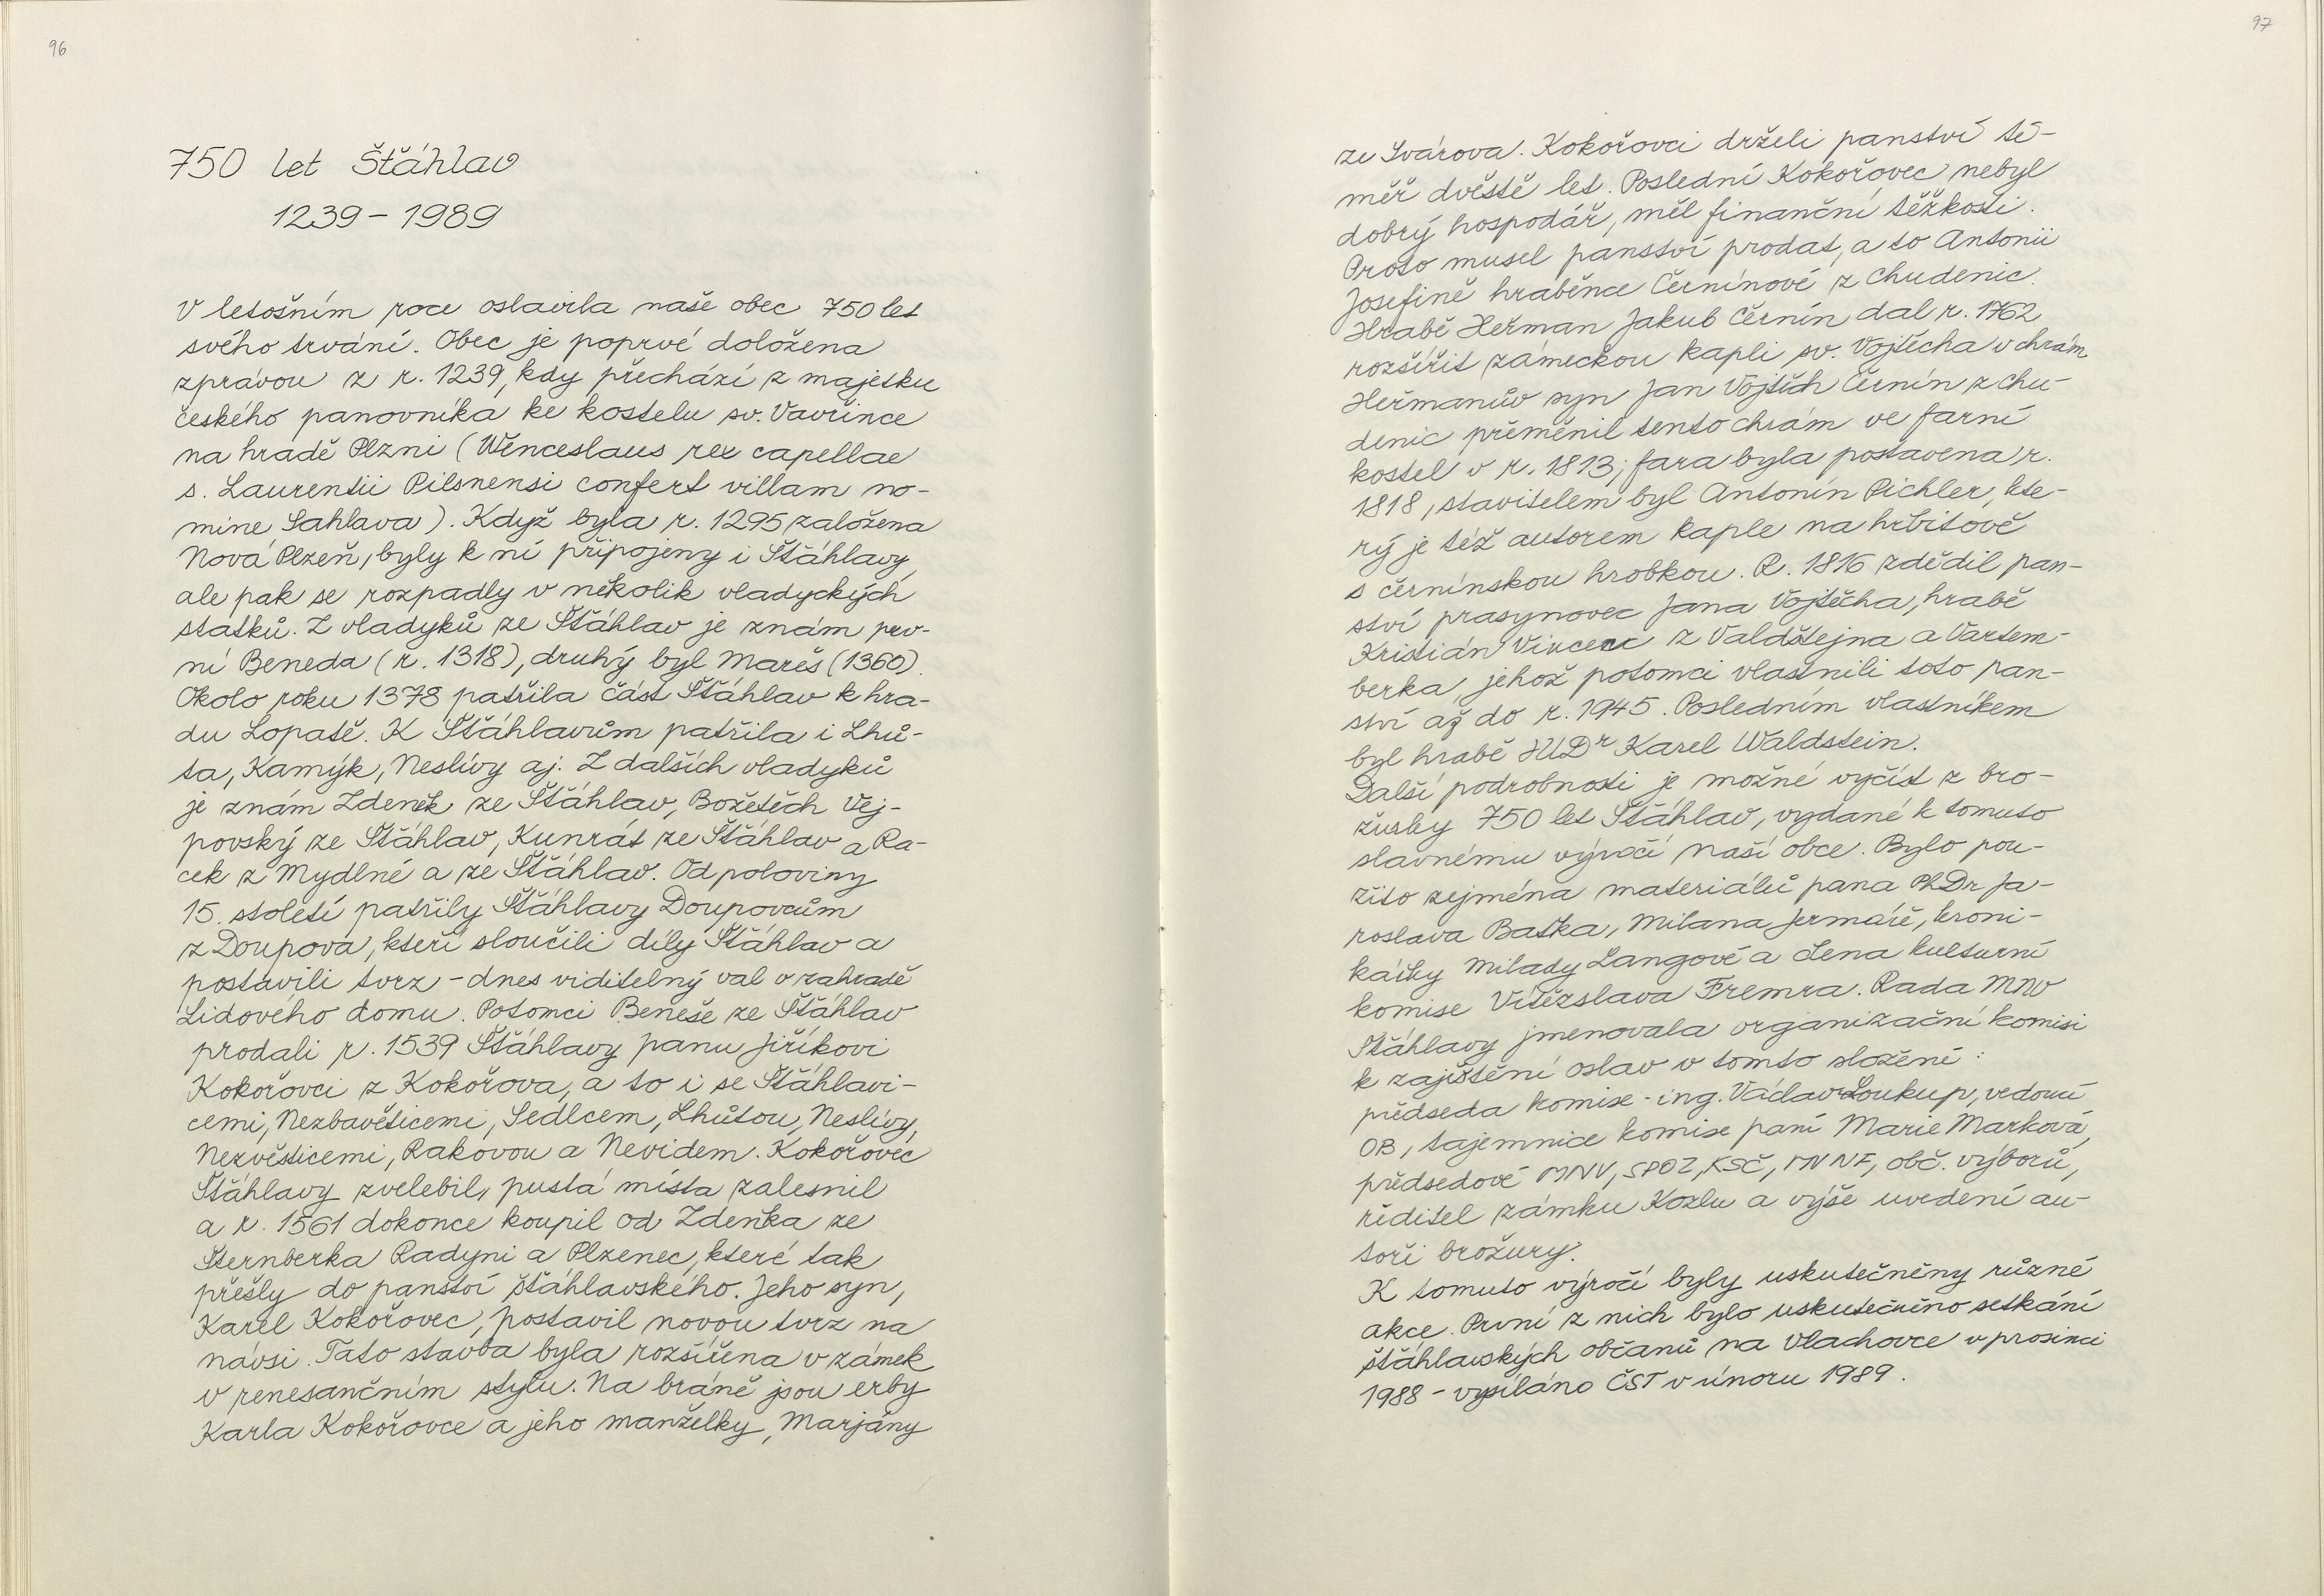 96
750 let Štáhlav
1239 - 1989
V letošním roce oslavila naše obec 750 let
svého trvání. Obec je poprvé doložena
zprávou z r. 1239, kdy přechází z majetku
českého panovníka ke kostelu sv. Vavřince
na hradě Plzni (Wenceslaus rex capellae
s. Laurentii Pilsnensi confert villam no-
mine Sahlava). Když byla r. 1295 založena
Nová Plzeň, byly k ní připojeny i Štáhlavy,
ale pak se rozpadly v několik vladyckých
statků. Z vladyků ze Štáhlav je znám prv-
ní Beneda (r. 1318), druhý byl Mareš (1360).
Okolo roku 1378 patřila část Štáhlav k hra-
du Lopatě. K Štáhlavům patřila i Lhů-
ta, Kamýk, Neslívy aj. Z dalších vladyků
je znám Zdeněk ze Štáhlav, Božetěch Vej-
povský ze Štáhlav, Kunrát ze Štáhlav a Ra-
cek z Mydlné a ze Štáhlav. Od poloviny
15. století patřily Štáhlavy Doupovcům
z Doupova, kteří sloučili díly Štáhlav a
postavili tvrz - dnes viditelný val v zahradě
Lidového domu. Potomci Beneše ze Štáhlav
prodali r. 1539 Štáhlavy panu Jiříkovi
Kokořovci z Kokořova, a to i se Štáhlavi-
cemi, Nezbavěticemi, Sedlcem, Lhůtou, Neslívy,
Nezvěsticemi, Rakovou a Nevidem. Kokořovec
Štáhlavy zvelebil, pustá místa zalesnil
a r. 1561 dokonce koupil od Zdeňka ze
Šternberka Radyni a Plzenec, které tak
přešly do panství štáhlavského. Jeho syn,
Karel Kokořovec, postavil novou tvrz na
návsi. Tato stavba byla rozšířena v zámek
v renesančním stylu. Na bráně jsou erby
Karla Kokořovce a jeho manželky, Marjány
97
ze Svárova. Kokořovci drželi panství té-
měř dvěstě let. Poslední Kokořovec nebyl
dobrý hospodář, měl finanční těžkosti.
Proto musel panství prodat, a to Antonii
Josefině hraběnce Černínové z Chudenic.
Hrabě Heřman Jakub Černín dal r. 1762
rozšířit zámeckou kapli sv. Vojtěcha v chrám.
Heřmanův syn Jan Vojtěch Černín z Chu-
denic přeměnil tento chrám ve farní
kostel v r. 1813; fara byla postavena r.
1818, stavitelem byl Antonín Pichler, kte-
rý je též autorem kaple na hřbitově
s černínskou hrobkou. R. 1816 zdědil pan-
ství prasynovec Jana Vojtěcha, hrabě
Kristián Vincenc z Valdštejna a Vartem-
berka, jehož potomci vlastnili toto pan-
ství až do r. 1945. Posledním vlastníkem
byl hrabě JUDr Karel Waldstein.
Další podrobnosti je možné vyčíst z bro-
žurky 750 let Štáhlav, vydané k tomuto
slavnému výročí naší obce. Bylo pou-
žito zejména materiálů pana PhDr Ja-
roslava Baťka, Milana Jermáře, kroni-
kářky Milady Langové a člena kulturní
komise Vítězslava Fremra. Rada MNV
Štáhlavy jmenovala organizační komisi
k zajištění oslav v tomto složení:
předseda komise - ing. Václav Soukup, vedoucí
OB, tajemnice komise paní Marie Marková,
předsedové MNV, SPOZ, KSČ, MV NF, obč. výborů,
ředitel zámku Kozlu a výše uvedení au-
toři brožury.
K tomuto výročí byly uskutečněny různé
akce. První z nich bylo uskutečněno setkání
štáhlavských občanů na Vlachovce v prosinci
1988 - vysíláno ČST v únoru 1989.